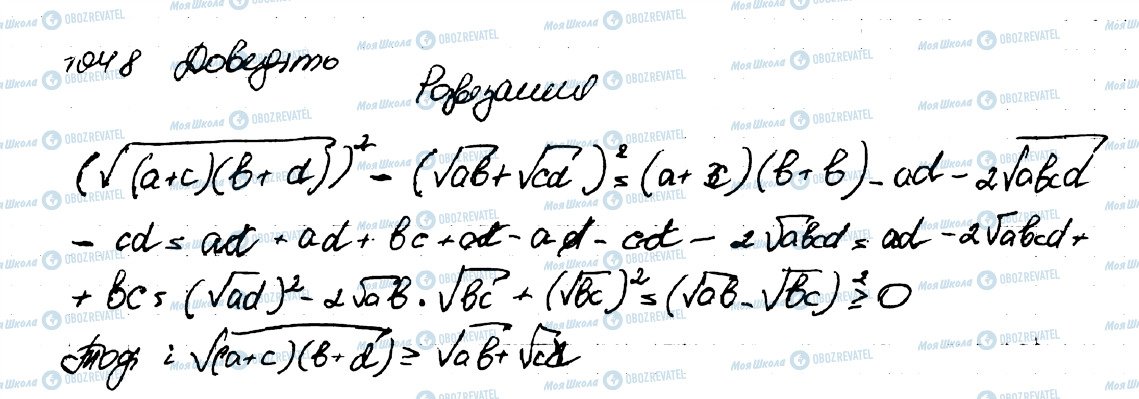 1048 Доведіть
Розв'язання
(√(a+c)(b+d))² - (√ab + √cd)² = (a+c)(b+b) - ad - 2√abcd
- cd = ad + ad + bc + cd - ad - cd - 2√abcd = ad - 2√abcd +
+ bc = (√ad)² - 2√ab · √bc + (√bc)² = (√ab - √bc)² ≥ 0
Тоді і √(a+c)(b+d) ≥ √ab + √cd